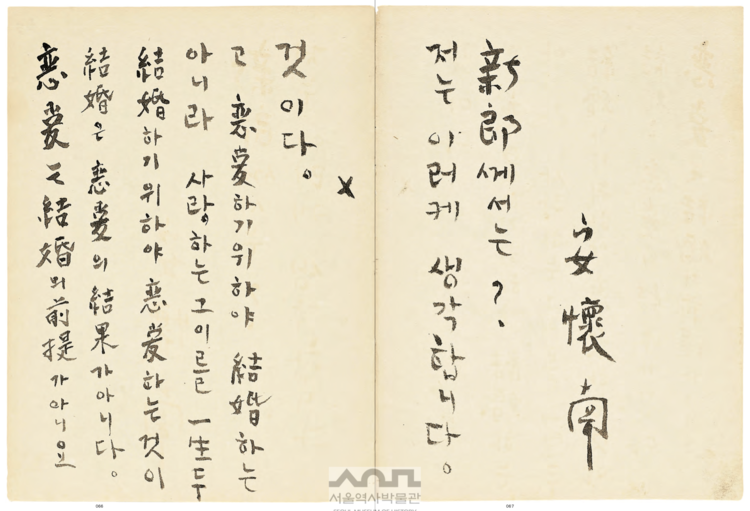 恋愛는 結婚의 前提가아니요
結婚은 恋愛의 結果가아니다。
結婚하기위하야 恋愛하는것이
아니라 사랑하는 그이를 一生두
고 恋愛하기위하야 結婚하는
것이다。
×
저는 이러케 생각합니다。
新郎께서는?.
安懷南
서울역사박물관
066
067